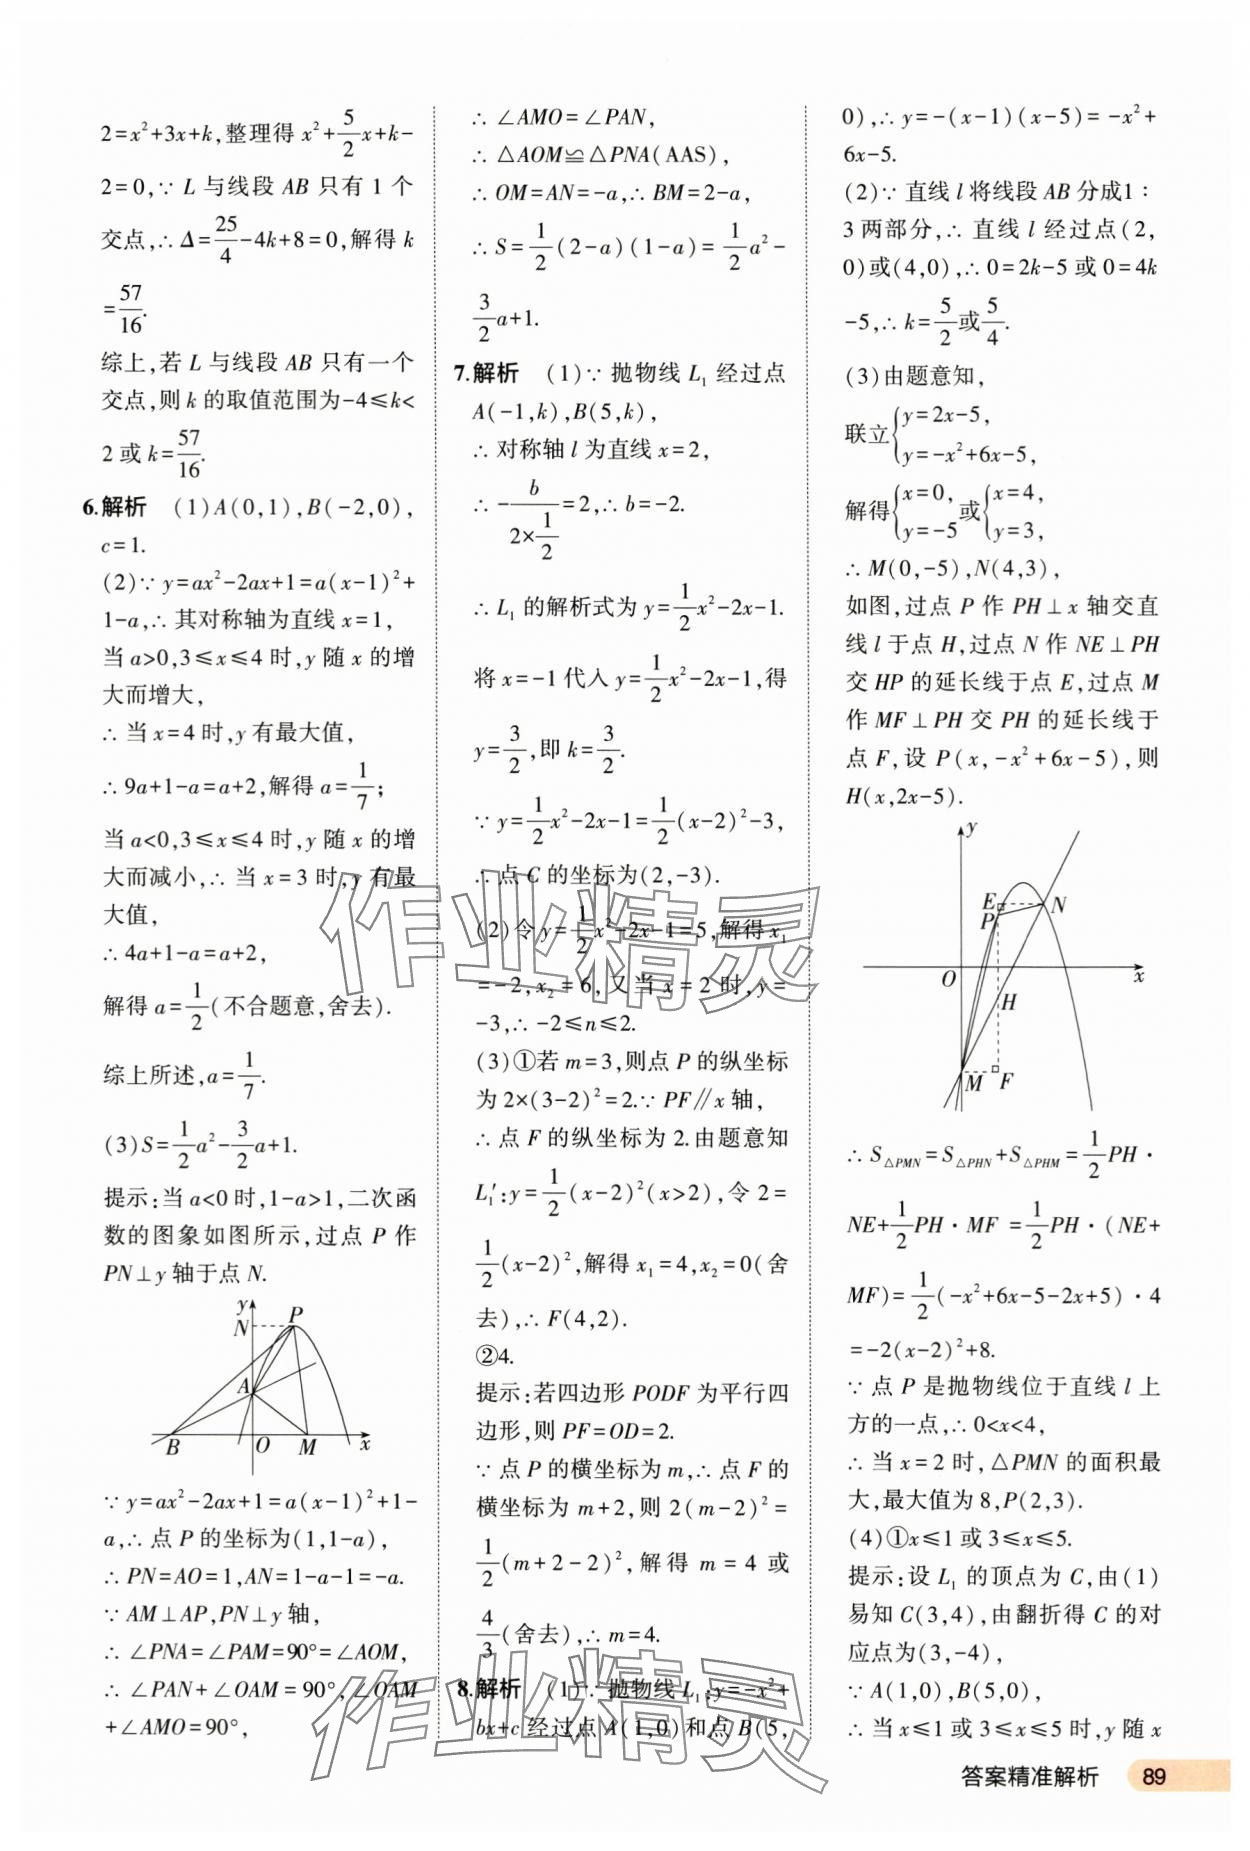 2=x²+3x+k,整理得 x²+5/2x+k-
2=0,∵ L 与线段 AB 只有 1 个
交点,∴ Δ=25/4-4k+8=0,解得 k
=57/16.
综上,若 L 与线段 AB 只有一个
交点,则 k 的取值范围为-4≤k<
2 或 k=57/16.
6.解析 (1)A(0,1),B(-2,0),
c=1.
(2)∵ y=ax²-2ax+1=a(x-1)²+
1-a,∴ 其对称轴为直线 x=1,
当 a>0,3≤x≤4 时,y 随 x 的增
大而增大,
∴ 当 x=4 时,y 有最大值,
∴ 9a+1-a=a+2,解得 a=1/7;
当 a<0,3≤x≤4 时,y 随 x 的增
大而减小,∴ 当 x=3 时,y 有最
大值,
∴ 4a+1-a=a+2,
解得 a=1/2(不合题意,舍去).
综上所述,a=1/7.
(3)S=1/2a²-3/2a+1.
提示:当 a<0 时,1-a>1,二次函
数的图象如图所示,过点 P 作
PN⊥y 轴于点 N.
y
N
P
A
B
O
M
x
∵ y=ax²-2ax+1=a(x-1)²+1-
a,∴ 点 P 的坐标为(1,1-a),
∴ PN=AO=1,AN=1-a-1=-a.
∵ AM⊥AP,PN⊥y 轴,
∴ ∠PNA=∠PAM=90°=∠AOM,
∴ ∠PAN+∠OAM=90°,∠OAM
+∠AMO=90°,
∴ ∠AMO=∠PAN,
∴ △AOM≌△PNA(AAS),
∴ OM=AN=-a,∴ BM=2-a,
∴ S=1/2(2-a)(1-a)=1/2a²-
3/2a+1.
7.解析 (1)∵ 抛物线 L₁ 经过点
A(-1,k),B(5,k),
∴ 对称轴 l 为直线 x=2,
∴ -b/(2×1/2)=2,∴ b=-2.
∴ L₁ 的解析式为 y=1/2x²-2x-1.
将 x=-1 代入 y=1/2x²-2x-1,得
y=3/2,即 k=3/2.
∵ y=1/2x²-2x-1=1/2(x-2)²-3,
∴ 点 C 的坐标为(2,-3).
(2)令 y=1/2x²-2x-1=5,解得 x₁
=-2,x₂=6,又当 x=2 时,y=
-3,∴ -2≤n≤2.
(3)①若 m=3,则点 P 的纵坐标
为 2×(3-2)²=2.∵ PF∥x 轴,
∴ 点 F 的纵坐标为 2.由题意知
L₁′:y=1/2(x-2)²(x>2),令 2=
1/2(x-2)²,解得 x₁=4,x₂=0(舍
去),∴ F(4,2).
②4.
提示:若四边形 PODF 为平行四
边形,则 PF=OD=2.
∵ 点 P 的横坐标为 m,∴ 点 F 的
横坐标为 m+2,则 2(m-2)²=
1/2(m+2-2)²,解得 m=4 或
4/3(舍去),∴ m=4.
8.解析 (1)∵ 抛物线 L₁:y=-x²+
bx+c 经过点 A(1,0)和点 B(5,
0),∴ y=-(x-1)(x-5)=-x²+
6x-5.
(2)∵ 直线 l 将线段 AB 分成1∶
3 两部分,∴ 直线 l 经过点(2,
0)或(4,0),∴ 0=2k-5 或 0=4k
-5,∴ k=5/2或5/4.
(3)由题意知,
联立{y=2x-5, y=-x²+6x-5,
解得{x=0, y=-5 或{x=4, y=3,
∴ M(0,-5),N(4,3),
如图,过点 P 作 PH⊥x 轴交直
线 l 于点 H,过点 N 作 NE⊥PH
交 HP 的延长线于点 E,过点 M
作 MF⊥PH 交 PH 的延长线于
点 F,设 P(x,-x²+6x-5),则
H(x,2x-5).
y
E
N
P
O
x
H
M
F
∴ S△PMN=S△PHN+S△PHM=1/2PH·
NE+1/2PH·MF=1/2PH·(NE+
MF)=1/2(-x²+6x-5-2x+5)·4
=-2(x-2)²+8.
∵ 点 P 是抛物线位于直线 l 上
方的一点,∴ 0<x<4,
∴ 当 x=2 时,△PMN 的面积最
大,最大值为 8,P(2,3).
(4)①x≤1 或 3≤x≤5.
提示:设 L₁ 的顶点为 C,由(1)
易知 C(3,4),由翻折得 C 的对
应点为(3,-4),
∵ A(1,0),B(5,0),
∴ 当 x≤1 或 3≤x≤5 时,y 随 x
作业精灵
作业精灵
答案精准解析 89